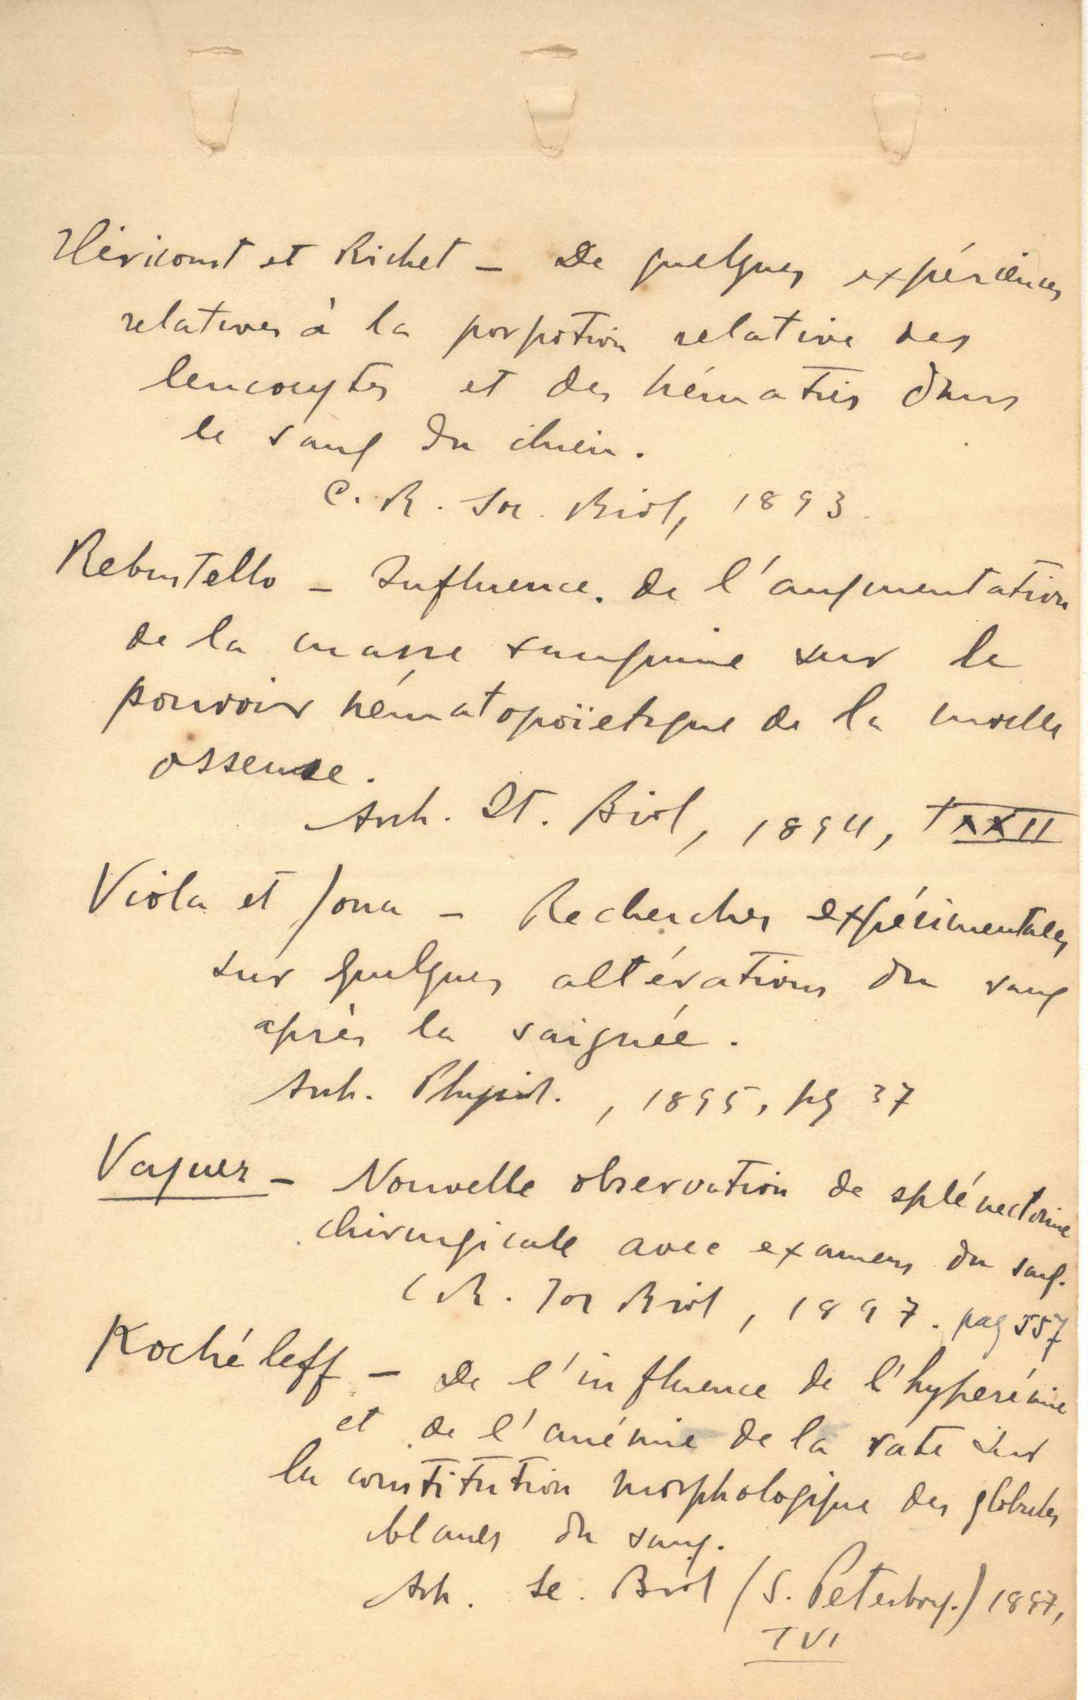 Héricourt et Richet – De quelques expériences
relatives à la porpotion relative des
leucocytes et des hématies dans
le sang du chien.
C. R. Soc. Biol, 1893.
Rebustello – Influence. de l'augmentation
de la masse sanguine sur le
pouvoir hématopoïetique de la moelle
osseuse.
Arch. It. Biol, 1894, T XXII
Viola et Jona – Recherches expérimentales
sur quelques altérations du sang
après la saignée.
Arch. Physiol. , 1895, pg 37
Vaquez – Nouvelle observation de splénectomie
chirurgicale avec examens du sang.
C R. Soc Biol , 1897. pag 557
Kochéleff – De l'influence de l'hyperémie
et de l'anémie de la rate sur
la constitution morphologique des globules
blancs du sang.
Arch. Sc. Biol (S. Petersbrg.) 1897,
T VI